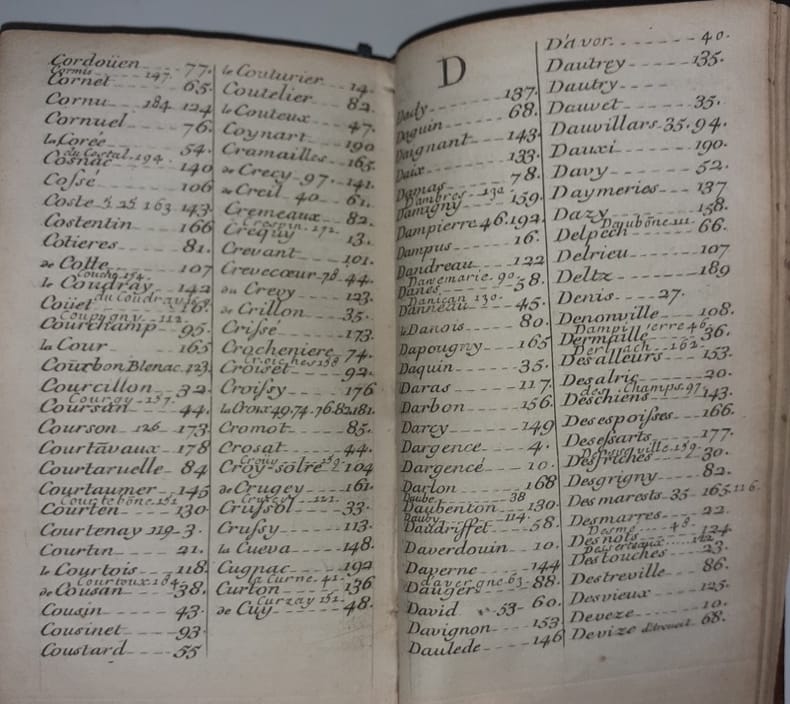 Cordoüen 77.
Cormis 147.
Cornet 65.
Cornu 184 124
Cornuel 76.
la Corée 54.
du Cortal. 194.
Cosnac 140
Cossé 106
Coste 163 143
Costentin 166
Cotieres 81.
de Cotte 107
Couchy 154
le Coudray 142
du Coudray
Coüet 16.
Coupigny 112
Courchamp 95.
la Cour 165
Courbon Blenac 123.
Courcillon 32
Couroy 157.
Coursan 44.
Courson 126 173
Courtavaux 178
Courtaruelle 84
Courtaumer 145
Courtebône 151
Courten 130
Courtenay 119-3.
Courtin 21.
le Courtois 118.
Courtoux 184.
de Cousan 38.
Cousin 43.
Cousinet 93
Coustard 55
le Couturier 14.
Coutelier 82.
le Couteux 47.
Coynart 190
Cramailles 165.
de Crecy 97. 141.
de Creil 40 61.
Cremeaux 82.
Crespin. 172.
Crequy 13.
Crevant 101.
Crevecœur 78. 44.
du Crevy 123.
de Crillon 35.
Crisse 173.
Crocheniere 74.
Croiches 158
Croiset 92.
Croissy 176
la Croix 49.74.76.82.181.
Cromot 85.
Crosat 44.
Croy-solre 104
de Crugey 161.
Crussol 33.
Crussy 113.
la Cueva 148.
Cugnac 192
la Curne. 41.
Curton 136
Curzay 152.
de Cuy 48.
D
Dady 137.
Daguin 68.
Daignant 143.
Daix 133.
Damas 78.
Dambres 132
Damigny 159.
Dampierre 46. 192.
Dampus 16.
Dandreau 122
Danemarie. 90.
Danès 58.
Danican 130.
Danneau 45.
le Danois 80.
Dapougny 165
Daquin 35.
Daras 117.
Darbon 156.
Darcy 149
Dargence 4.
Dargencé 10.
Darlon 168
Daube 38
Daubenton 130.
Dauby 114.
Daudriffet 58.
Daverdouin 10.
Daverne 144
davergne 63.
Daugers 88.
David 53- 60.
Davignon 153.
Daulede 146
D'avor 40.
Dautrey 135.
Dautry
Dauvet 35.
Dauvillars 35. 94.
Dauxi 190.
Davy 52.
Daymeries 137
Dazy 158.
Daubône 111.
Delpech 66.
Delrieu 107
Deltz 189
Denis 27.
Denonville 108.
Dampierre 46
Dermaille 36.
Derlach 162.
Desalleurs 153.
Desalric 20.
des Champs. 97.
Deschiens 143.
Desespoisses 166.
Desessarts 177.
Desfriches 30.
Desgrigny 82.
Desmarests 35 165. 116.
Desmarres 22.
Desmé 48.
Desnots 124
Destouches 23.
Destreville 86.
Desvieux 125.
Deveze 10.
Devize 68.